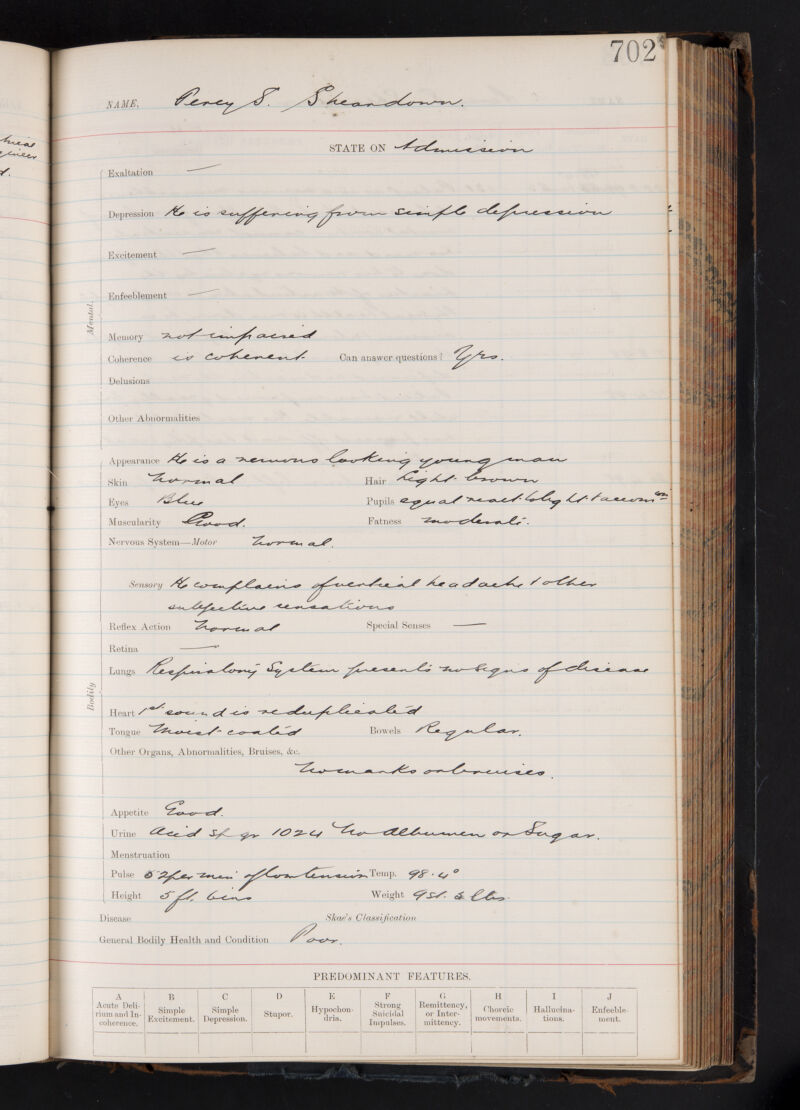 702
NAME, Percy S. Sheardown.
STATE ON Admission
Exaltation —
Depression He is suffering from simple depression
Excitement —
Enfeeblement —
Mental.
Memory not impaired
Coherence is coherent Can answer questions? Yes.
Delusions
Other Abnormalities
Appearance He is a nervous looking young man
Skin Normal Hair Light brown
Eyes Blue Pupils equal react to light & accom
Muscularity Good. Fatness moderate.
Nervous System—Motor Normal.
Sensory He complains of vertical headache & other
subjective sensations
Reflex Action Normal Special Senses —
Retina —
Lungs Respiratory System presents no signs of disease
Bodily
Heart 1st sound is reduplicated
Tongue Moist coated Bowels Regular.
Other Organs, Abnormalities, Bruises, &c.
No marks or bruises.
Appetite Good.
Urine Acid Sp gr 1024 No Albumen or Sugar.
Menstruation
Pulse 52 per min of low tension Temp. 98.4°
Height 5 ft. 6 ins Weight 9 st. lbs.
Disease Skae's Classification
General Bodily Health and Condition Poor.
PREDOMINANT FEATURES.
A B C D E F G H I J
Acute Deli- Simple Simple Stupor. Hypochon- Strong Remittency, Choreic Hallucina- Enfeeble-
rium and In- Excitement. Depression. dria. Suicidal or Inter- movements. tions. ment.
coherence. Impulses. mittency.